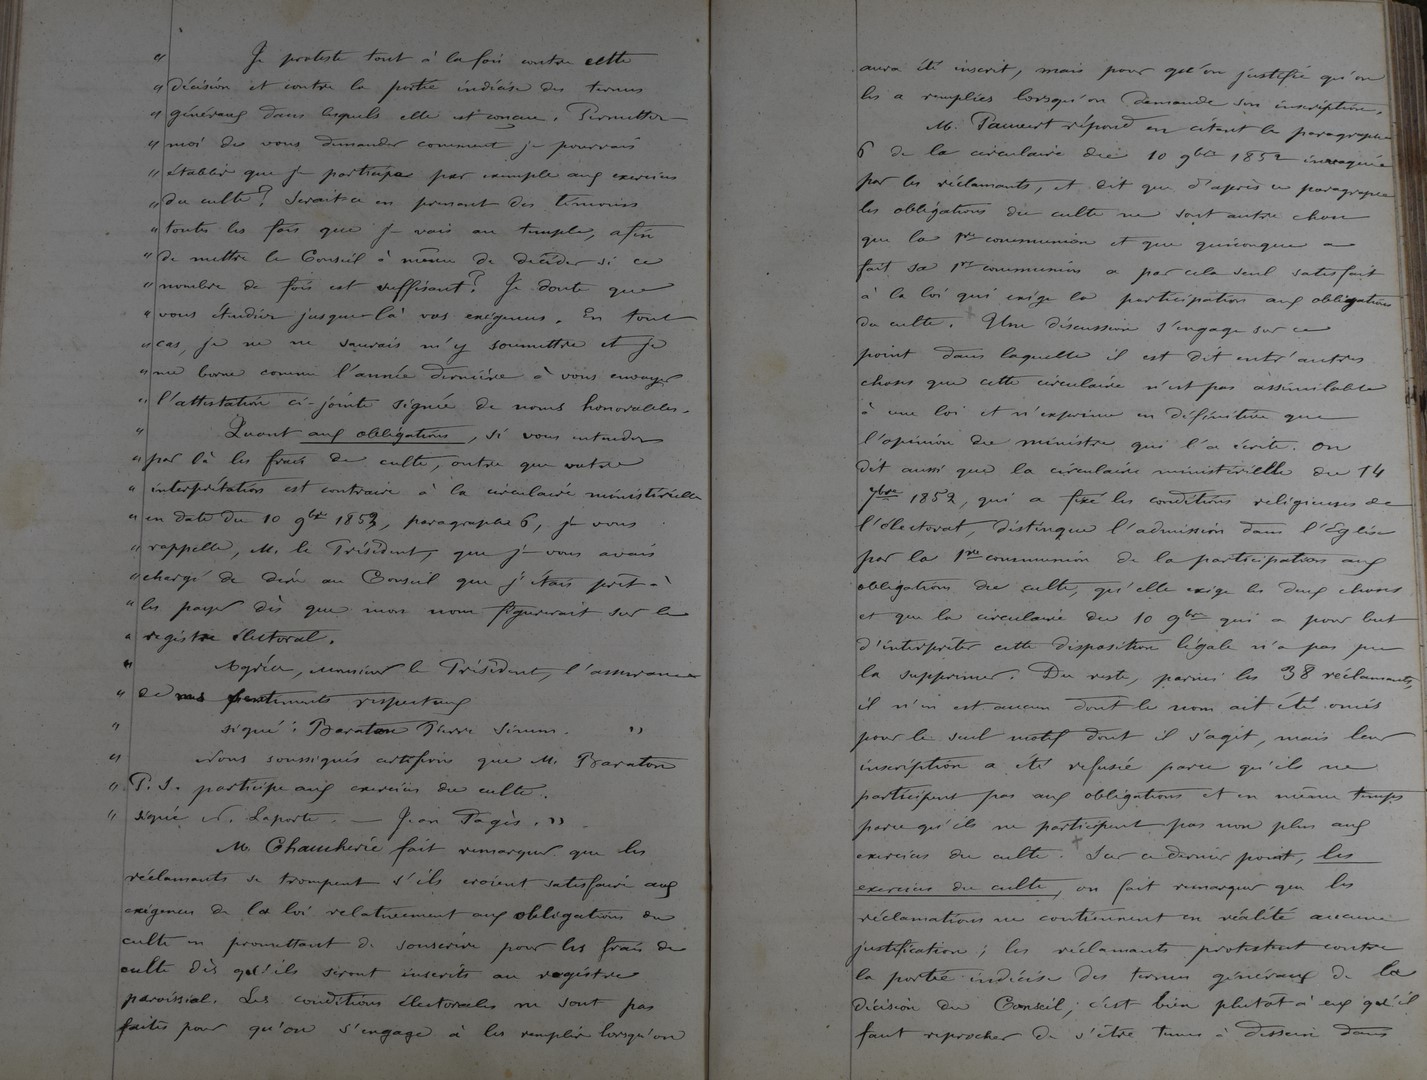 " Je proteste tout à la fois contre cette
" décision et contre la portée indécise des termes
" généraux dans lesquels elle est conçue. Permettez
" moi de vous demander comment je pourrais
" établir que je participe par exemple aux exercices
" du culte? Serait-ce en prenant des témoins
" toutes les fois que je vais au temple, afin
" de mettre le Conseil à même de décider si ce
" nombre de fois est suffisant? Je doute que
" vous étendiez jusque là vos exigences. En tout
" cas, je ne saurais m'y soumettre et je
" me borne comme l'année dernière à vous envoyer
" l'attestation ci-jointe signée de noms honorables.
" Quant aux obligations, si vous entendez
" par là les frais de culte, outre que votre
" interprétation est contraire à la circulaire ministérielle
" en date du 10 9bre 1852, paragraphe 6, je vous
" rappelle, M. le Président, que je vous avais
" chargé de dire au Conseil que j'étais prêt à
" les payer dès que mon nom figurerait sur le
" registre électoral.
" Agréez, monsieur le Président, l'assurance
" de mes sentiments respectueux
" signé: Baraton Pierre Simon. "
" Nous soussignés certifions que M. Baraton
" P. S. participe aux exercices du culte.
" signé N. Laporte. — Jean Pagès. "
M. Chaucherie fait remarquer que les
réclamants se trompent s'ils croient satisfaire aux
exigences de la loi relativement aux obligations du
culte en promettant de souscrire pour les frais de
culte dès qu'ils seront inscrits au registre
paroissial. Les conditions électorales ne sont pas
faites pour qu'on s'engage à les remplir lorsqu'on
aura été inscrit, mais pour qu'on justifie qu'on
les a remplies lorsqu'on demande son inscription.
M. Paucert répond en citant le paragraphe
6 de la circulaire du 10 9bre 1852 invoquée
par les réclamants, et dit que d'après ce paragraphe
les obligations du culte ne sont autre chose
que la 1re communion et que quiconque a
fait sa 1re communion a par cela seul satisfait
à la loi qui exige la participation aux obligations
du culte. Une discussion s'engage sur ce
point dans laquelle il est dit entr'autres
choses que cette circulaire n'est pas assimilable
à une loi et n'exprime en définitive que
l'opinion du ministre qui l'a écrite. On
dit aussi que la circulaire ministérielle du 14
7bre 1852, qui a fixé les conditions religieuses de
l'électorat, distingue l'admission dans l'Eglise
par la 1re communion de la participation aux
obligations du culte, qu'elle exige les deux choses
et que la circulaire du 10 9bre qui a pour but
d'interpréter cette disposition légale n'a pas pu
la supprimer. Du reste, parmi les 38 réclamants,
il n'en est aucun dont le nom ait été omis
pour le seul motif dont il s'agit, mais leur
inscription a été refusée parce qu'ils ne
participent pas aux obligations et en même temps
parce qu'ils ne participent pas non plus aux
exercices du culte. Sur ce dernier point, les
exercices du culte, on fait remarquer que les
réclamations ne contiennent en réalité aucune
justification; les réclamants protestent contre
la portée indécise des termes généraux de la
décision du Conseil; c'est bien plutôt à eux qu'il
faut reprocher de s'être tenus à dessein dans